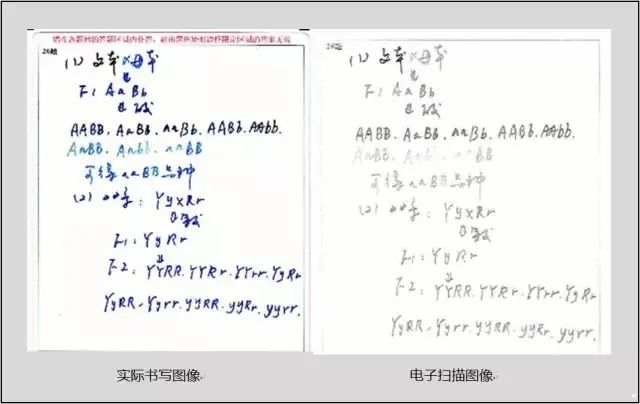 请在各题目的答题区域内作答,超出黑色矩形边框限定区域的答案无效
26题
(1) 父本×母本
↓
F1 AaBb
AABB. AaBb. aaBb. AABb. AAbb.
AaBB. Aabb. aaBB
可得aaBB品种
(2) : YyxRr
F1: YyRr
↓
F2: YYRR. YYRr. YYrr. YyRr
YyRR. Yyrr. yyRR. yyRr. yyrr.
26题
(1) 父本×母本
↓
F1 AaBb
AABB. AaBb. aaBb. AABb. AAbb.
AaBB. Aabb. aaBB
可得aaBB品种
(2) : YyxRr
F1: YyRr
↓
F2: YYRR. YYRr. YYrr. YyRr
YyRR. Yyrr. yyRR. yyRr. yyrr.
实际书写图像
电子扫描图像